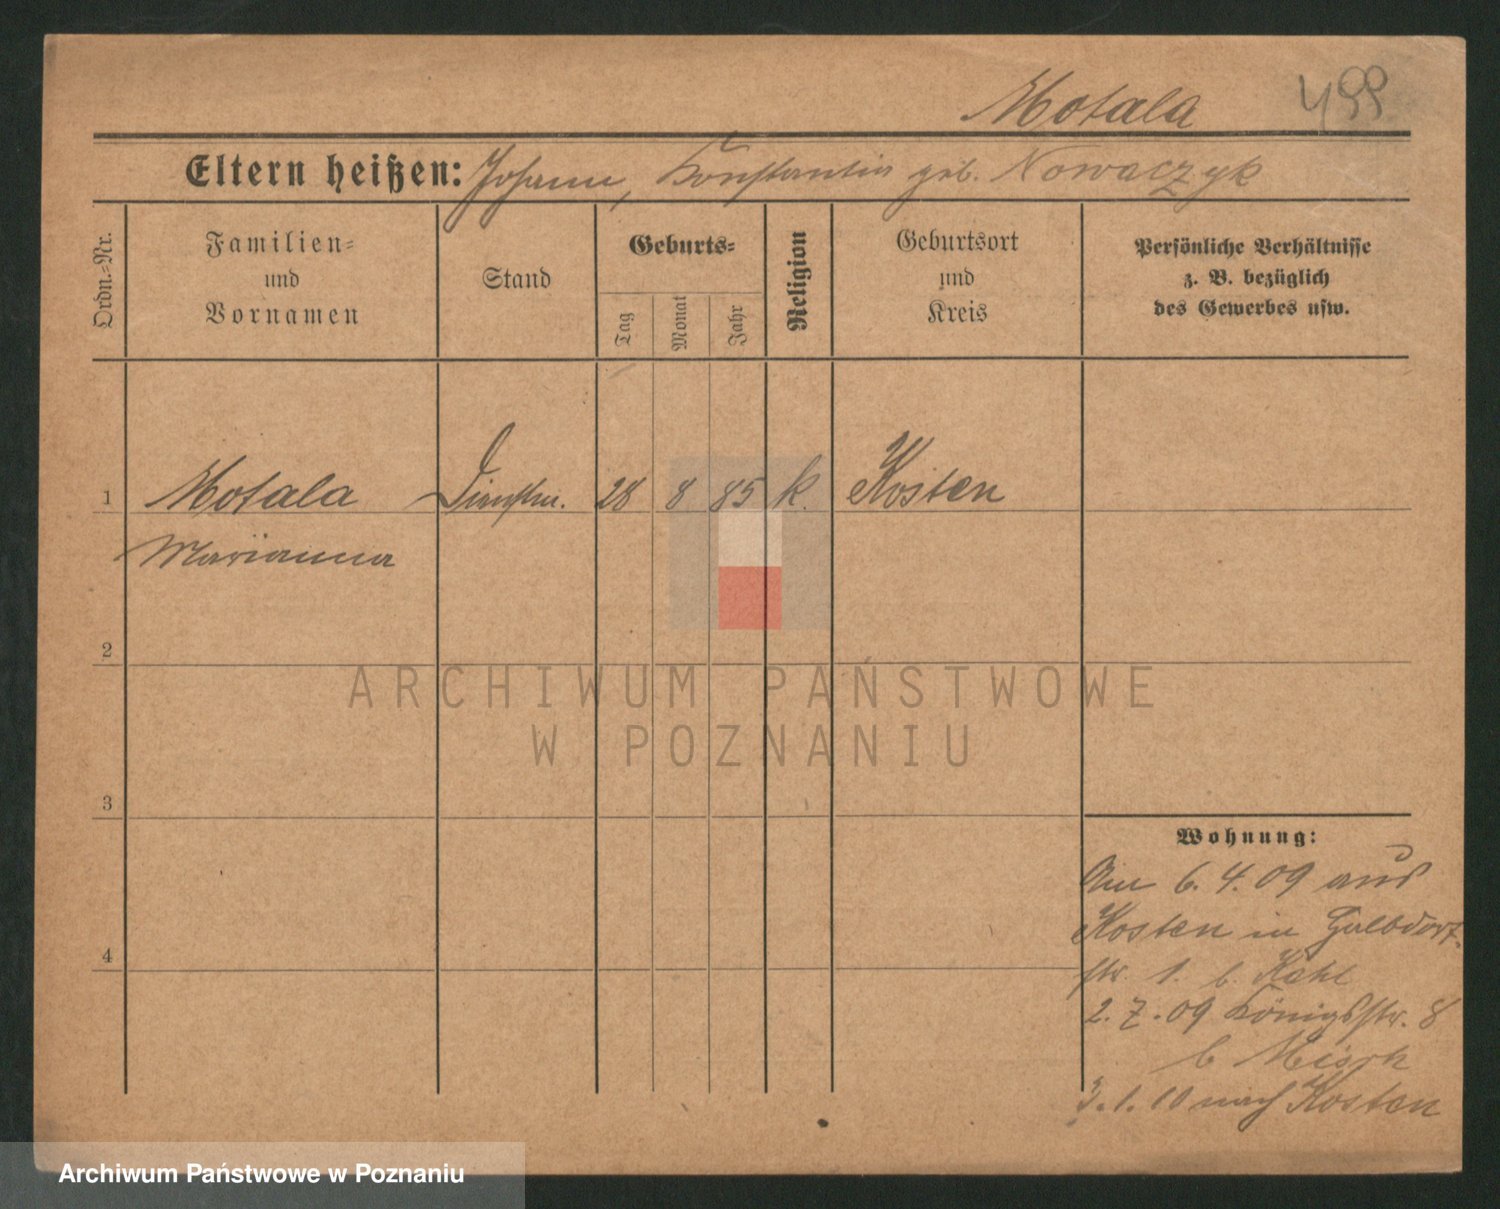 Motala 499
Eltern heißen: Johann, Konstantin geb. Nowaczyk
Ordn.-Nr.
Familien-
und
Vornamen
Stand
Geburts-
Tag
Monat
Jahr
Religion
Geburtsort
und
Kreis
Persönliche Verhältnisse
z. B. bezüglich
des Gewerbes usw.
1 Motala Dienstm. 28 8 85 k. Kosten
Marianna
2
ARCHIWUM PAŃSTWOWE
W POZNANIU
3
Wohnung:
Am 6. 4. 09 aus
Kosten in
4
str. 1. b. Kahl
2. 7. 09 Königsstr. 8
b
3. 1. 10 nach Kosten
Archiwum Państwowe w Poznaniu